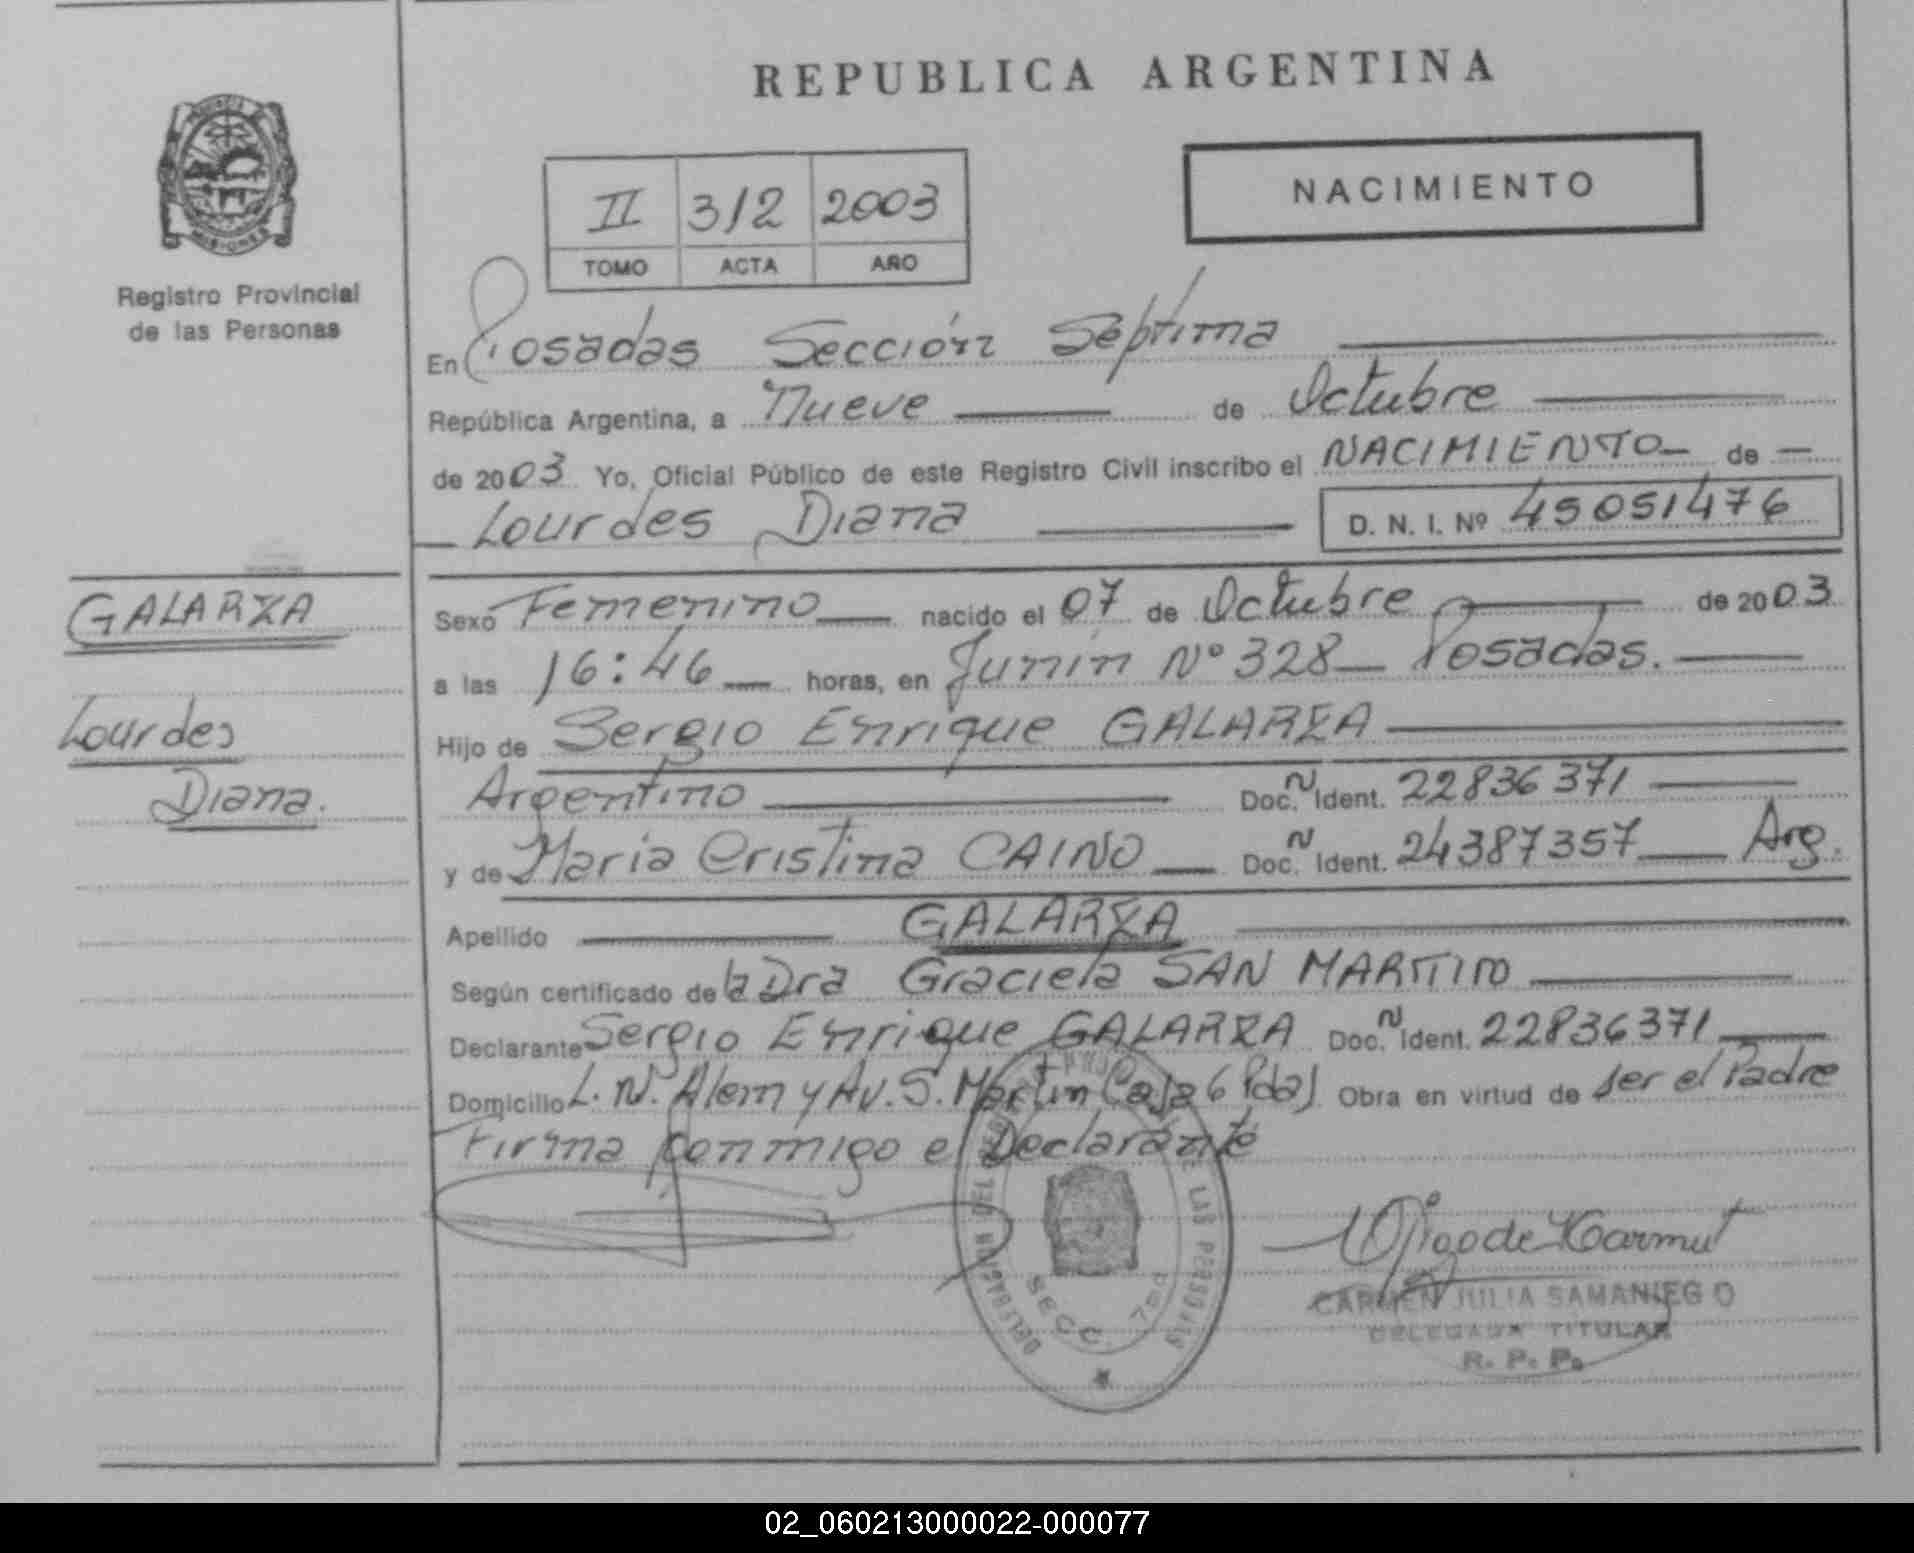 REPUBLICA ARGENTINA
NACIMIENTO
II 312 2003
TOMO ACTA AÑO
MISIONES
Registro Provincial
de las Personas
En Posadas Sección Séptima
República Argentina, a Nueve de Octubre
de 2003 Yo, Oficial Público de este Registro Civil inscribo el NACIMIENTO de
Lourdes Diana D. N. I. Nº 45051476
GALARZA
Lourdes
Diana.
Sexo Femenino nacido el 07 de Octubre de 2003
a las 16:46 horas, en Junín Nº 328 Posadas.
Hijo de Sergio Enrique GALARZA
Argentino Doc. N Ident. 22836371
y de María Cristina CAINO Doc. N Ident. 24387357 Arg.
Apellido GALARZA
Según certificado de la Dra Graciela SAN MARTIN
Declarante Sergio Enrique GALARZA Doc. N Ident. 22836371
Domicilio L. N. Alem y Av. S. Martin Casa 6 Pdas Obra en virtud de ser el Padre
Firma conmigo el Declarante
DELEGACION DEL LAS PERSONAS
SECC. 7ma
CARMEN JULIA SAMANIEGO
DELEGADA TITULAR
R. P. P.
02_060213000022-000077